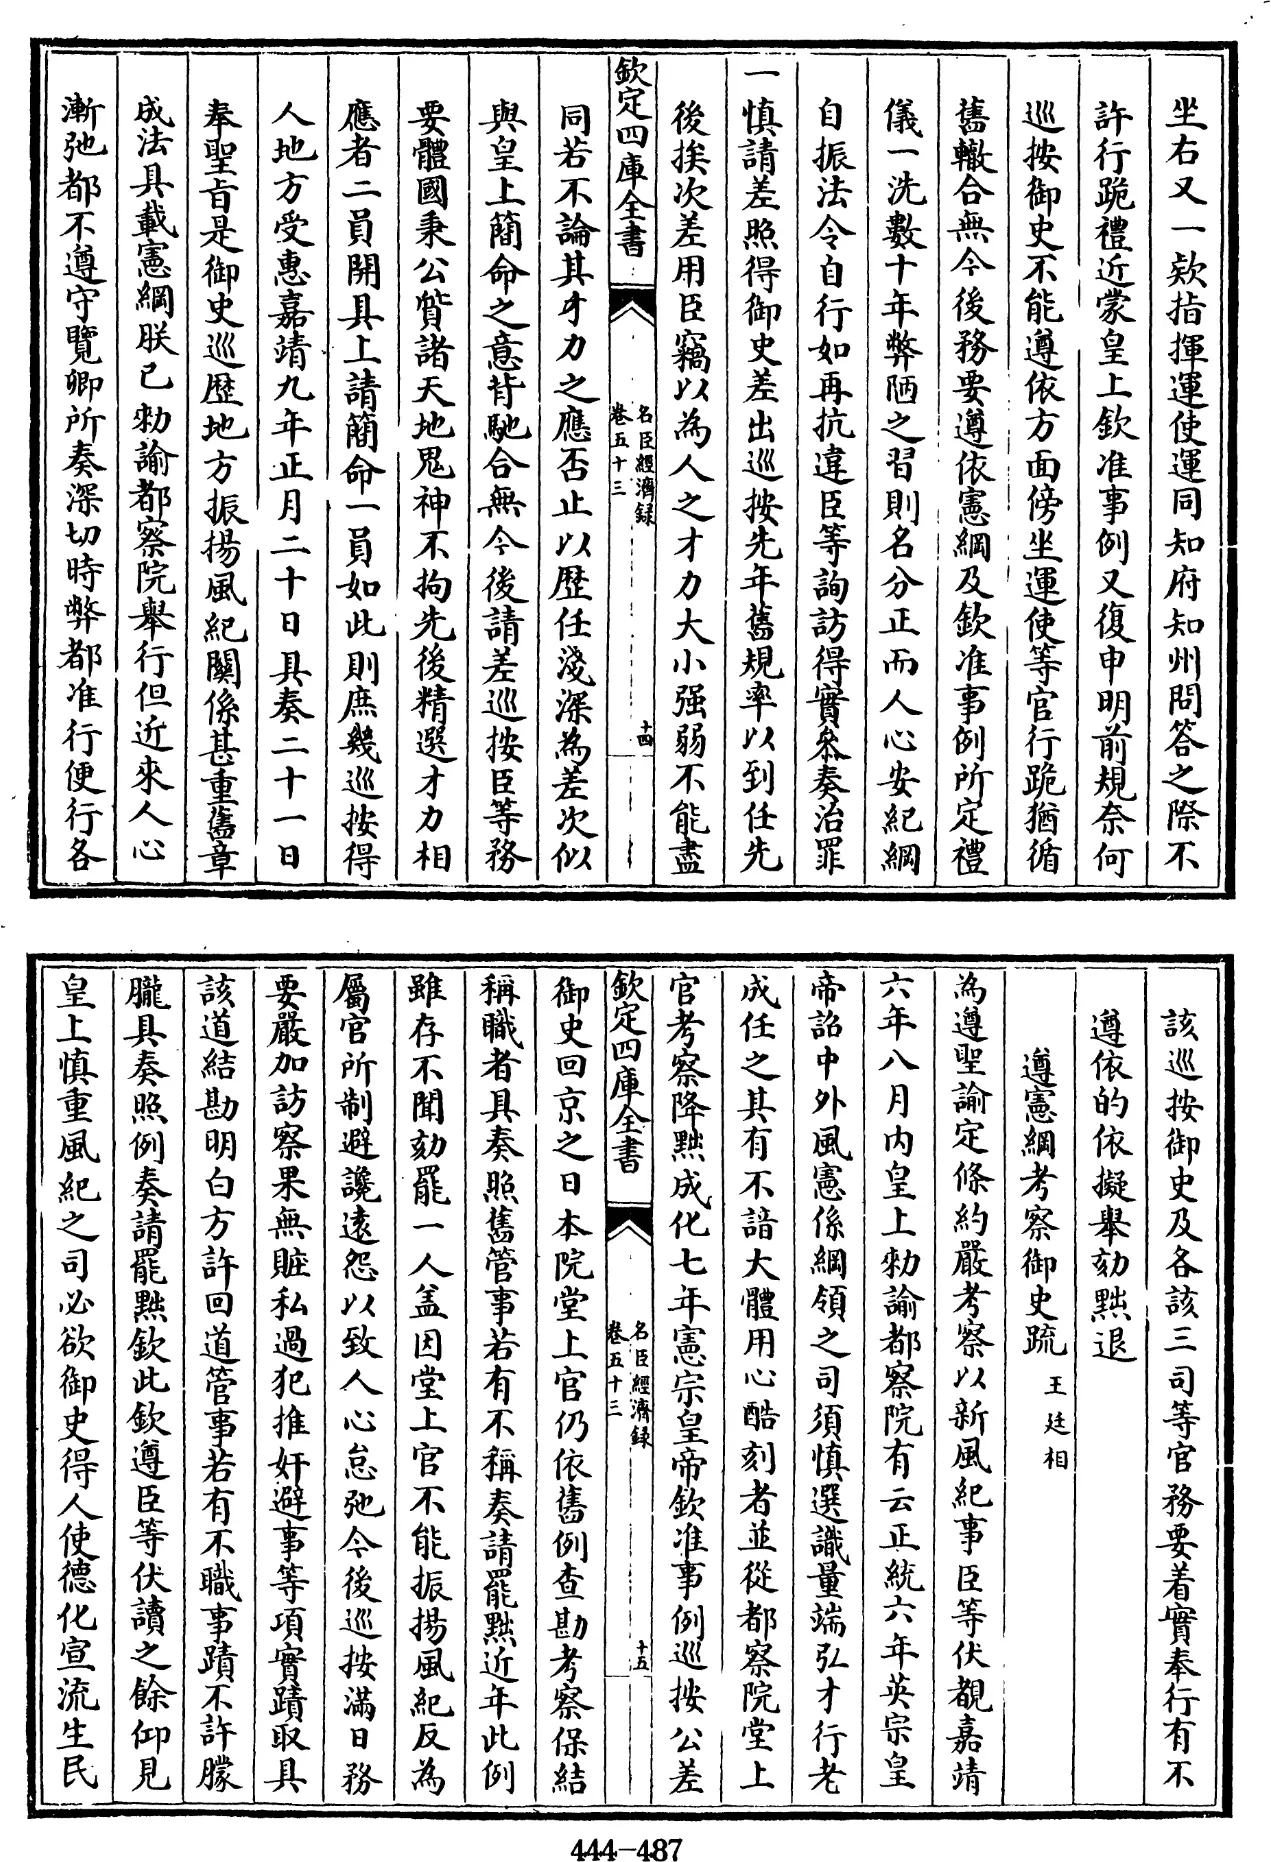 坐右又一欵指揮運使運同知府知州問答之際不
許行跪禮近蒙皇上欽准事例又復申明前規奈何
巡按御史不能遵依方面傍坐運使等官行跪猶循
舊轍合無今後務要遵依憲綱及欽准事例所定禮
儀一洗數十年弊陋之習則名分正而人心安紀綱
自振法令自行如再抗違臣等詢訪得實叅奏治罪
一慎請差照得御史差出巡按先年舊規率以到任先
後挨次差用臣竊以為人之才力大小强弱不能盡
欽定四庫全書
名臣經濟録
卷五十三
十四
同若不論其才力之應否止以歷任淺深為差次似
與皇上簡命之意背馳合無今後請差巡按臣等務
要體國秉公質諸天地鬼神不拘先後精選才力相
應者二員開具上請簡命一員如此則庶幾巡按得
人地方受惠嘉靖九年正月二十日具奏二十一日
奉聖旨是御史巡歷地方振揚風紀關係甚重舊章
成法具載憲綱朕已勑諭都察院舉行但近來人心
漸弛都不遵守覽卿所奏深切時弊都准行便行各
該巡按御史及各該三司等官務要着實奉行有不
遵依的依擬舉劾黜退
遵憲綱考察御史疏 王廷相
為遵聖諭定條約嚴考察以新風紀事臣等伏覩嘉靖
六年八月内皇上勑諭都察院有云正統六年英宗皇
帝詔中外風憲係綱領之司須慎選識量端弘才行老
成任之其有不諳大體用心酷刻者並從都察院堂上
官考察降黜成化七年憲宗皇帝欽准事例巡按公差
欽定四庫全書
名臣經濟録
卷五十三
十五
御史回京之日本院堂上官仍依舊例查勘考察保結
稱職者具奏照舊管事若有不稱奏請罷黜近年此例
雖存不聞劾罷一人盖因堂上官不能振揚風紀反為
屬官所制避讒遠怨以致人心怠弛今後巡按滿日務
要嚴加訪察果無賍私過犯推奸避事等項實蹟取具
該道結勘明白方許回道管事若有不職事蹟不許朦
朧具奏照例奏請罷黜欽此欽遵臣等伏讀之餘仰見
皇上慎重風紀之司必欲御史得人使德化宣流生民
444-487